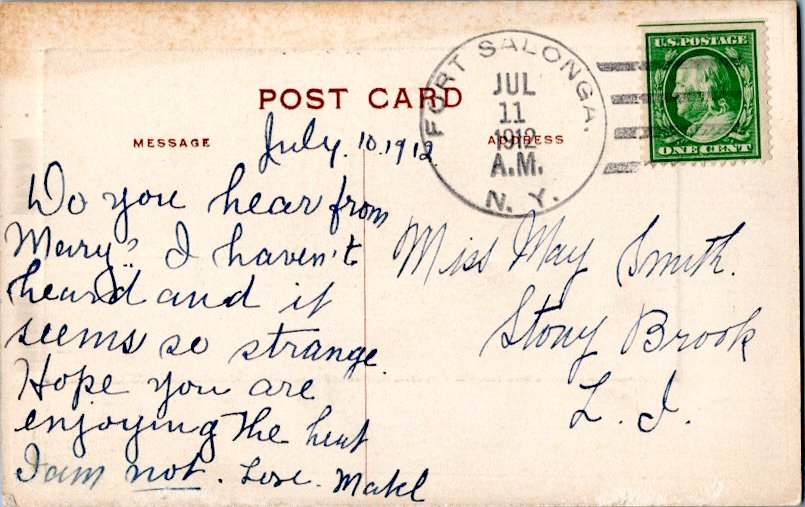 POST CARD
MESSAGE
ADDRESS
FORT SALONGA.
JUL
11
1912
A.M.
N. Y.
U.S. POSTAGE
ONE CENT
July. 10. 1912
Do you hear from
Mary? I haven't
heard and it
seems so strange.
Hope you are
enjoying the heat
I am not. Love. Mabel
Miss May Smith.
Stony Brook
L. I.